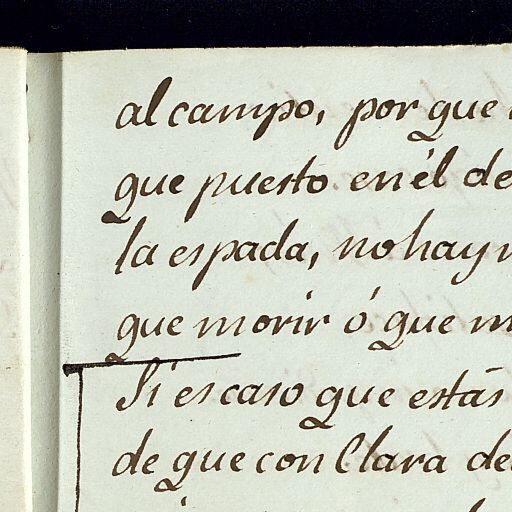 al campo, por que
que puesto en él de
la espada, no hay
que morir ó que m
Si es caso que estás
de que con Clara de